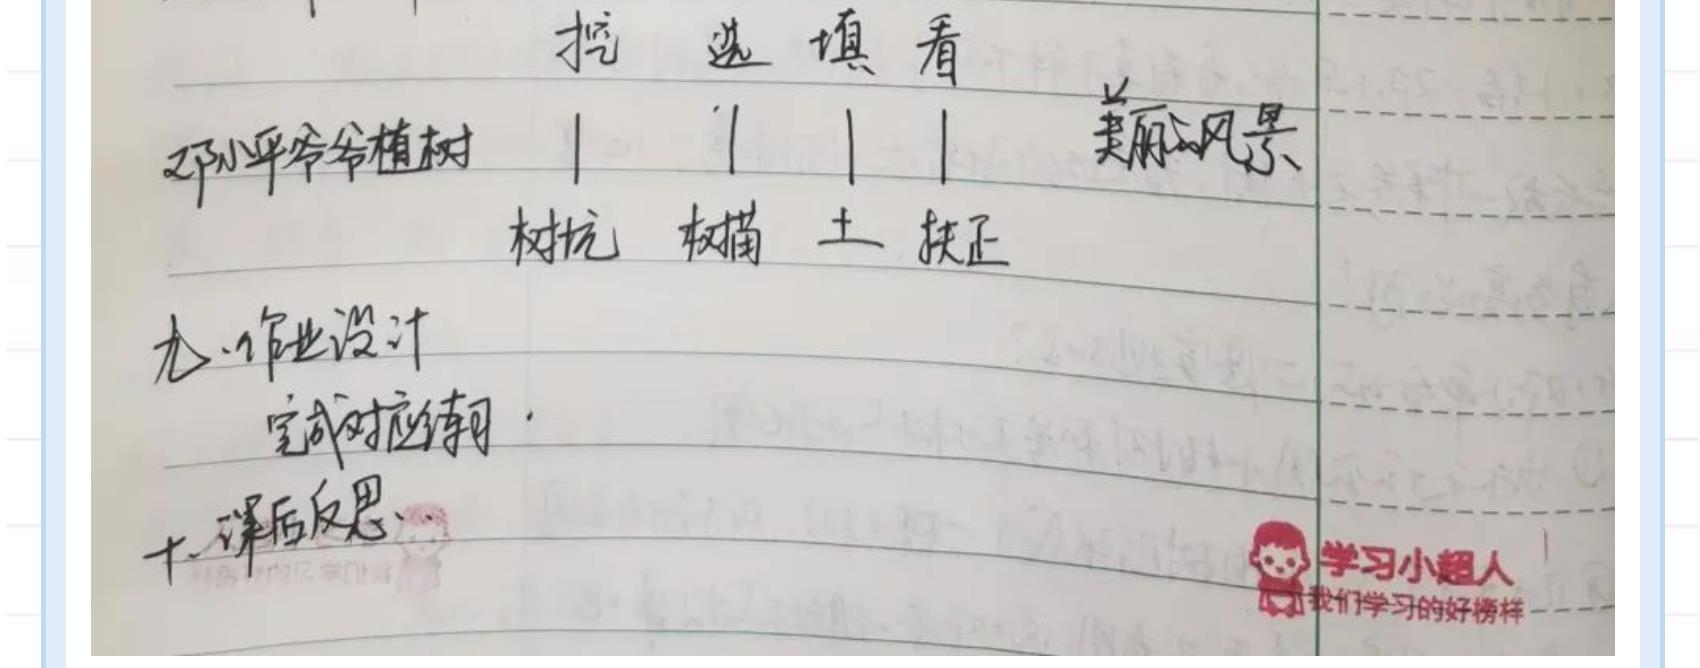 挖 选 填 看
邓小平爷爷植树 | | | | 美丽的风景
树坑 树苗 土 扶正
九、作业设计
完成对应练习.
十、课后反思...
学习小超人
我们学习的好榜样